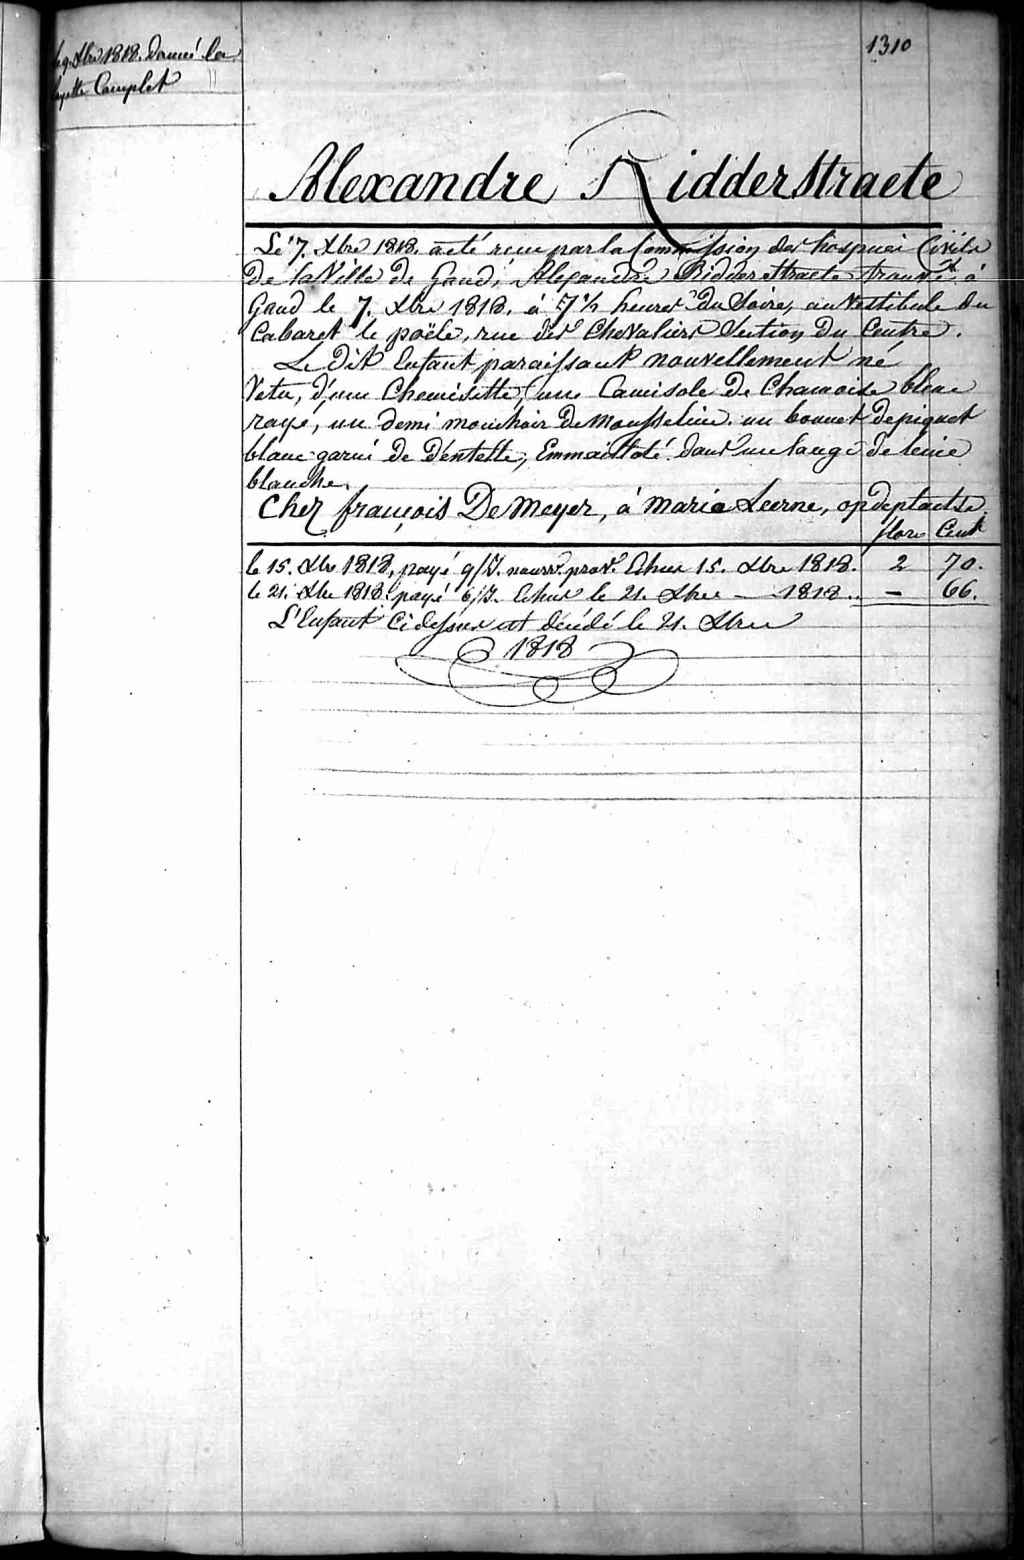 le 9. Xbre 1818. donné la
layette Complet
1310
Alexandre Ridderstraete
Le 7. Xbre 1818. a été recu par la Commission des hospices Civils
de la Ville de Gand, Alexandre Ridderstraete trouvé à
Gand le 7. Xbre 1818. à 7 1/2 heures du Soire, au Vestibule du
Cabaret le poële, rue des Chevaliers Section du Centre.
Le Dit Enfant paraissant nouvellement né
Vetu, d'une Chemisette, une Camisole de Chamoise bleue
rayé, un demi mouchoir De Mousseline. un bonnet de piquet
blanc garni de déntelle, Emmaillolé dans un lange de leine
blanche.
Chez françois De Meyer, à Maria Leerne, op
flors Cent
le 15. Xbre 1818, payé 9/J. nourr. prov. Echue 15. Xbre 1818. 2 70.
le 21. Xbre 1818. payé 6/J. Echus le 21. Xbre — 1818. — 66.
L'Enfant Ci dessus est décédé le 21. Xbre
1818